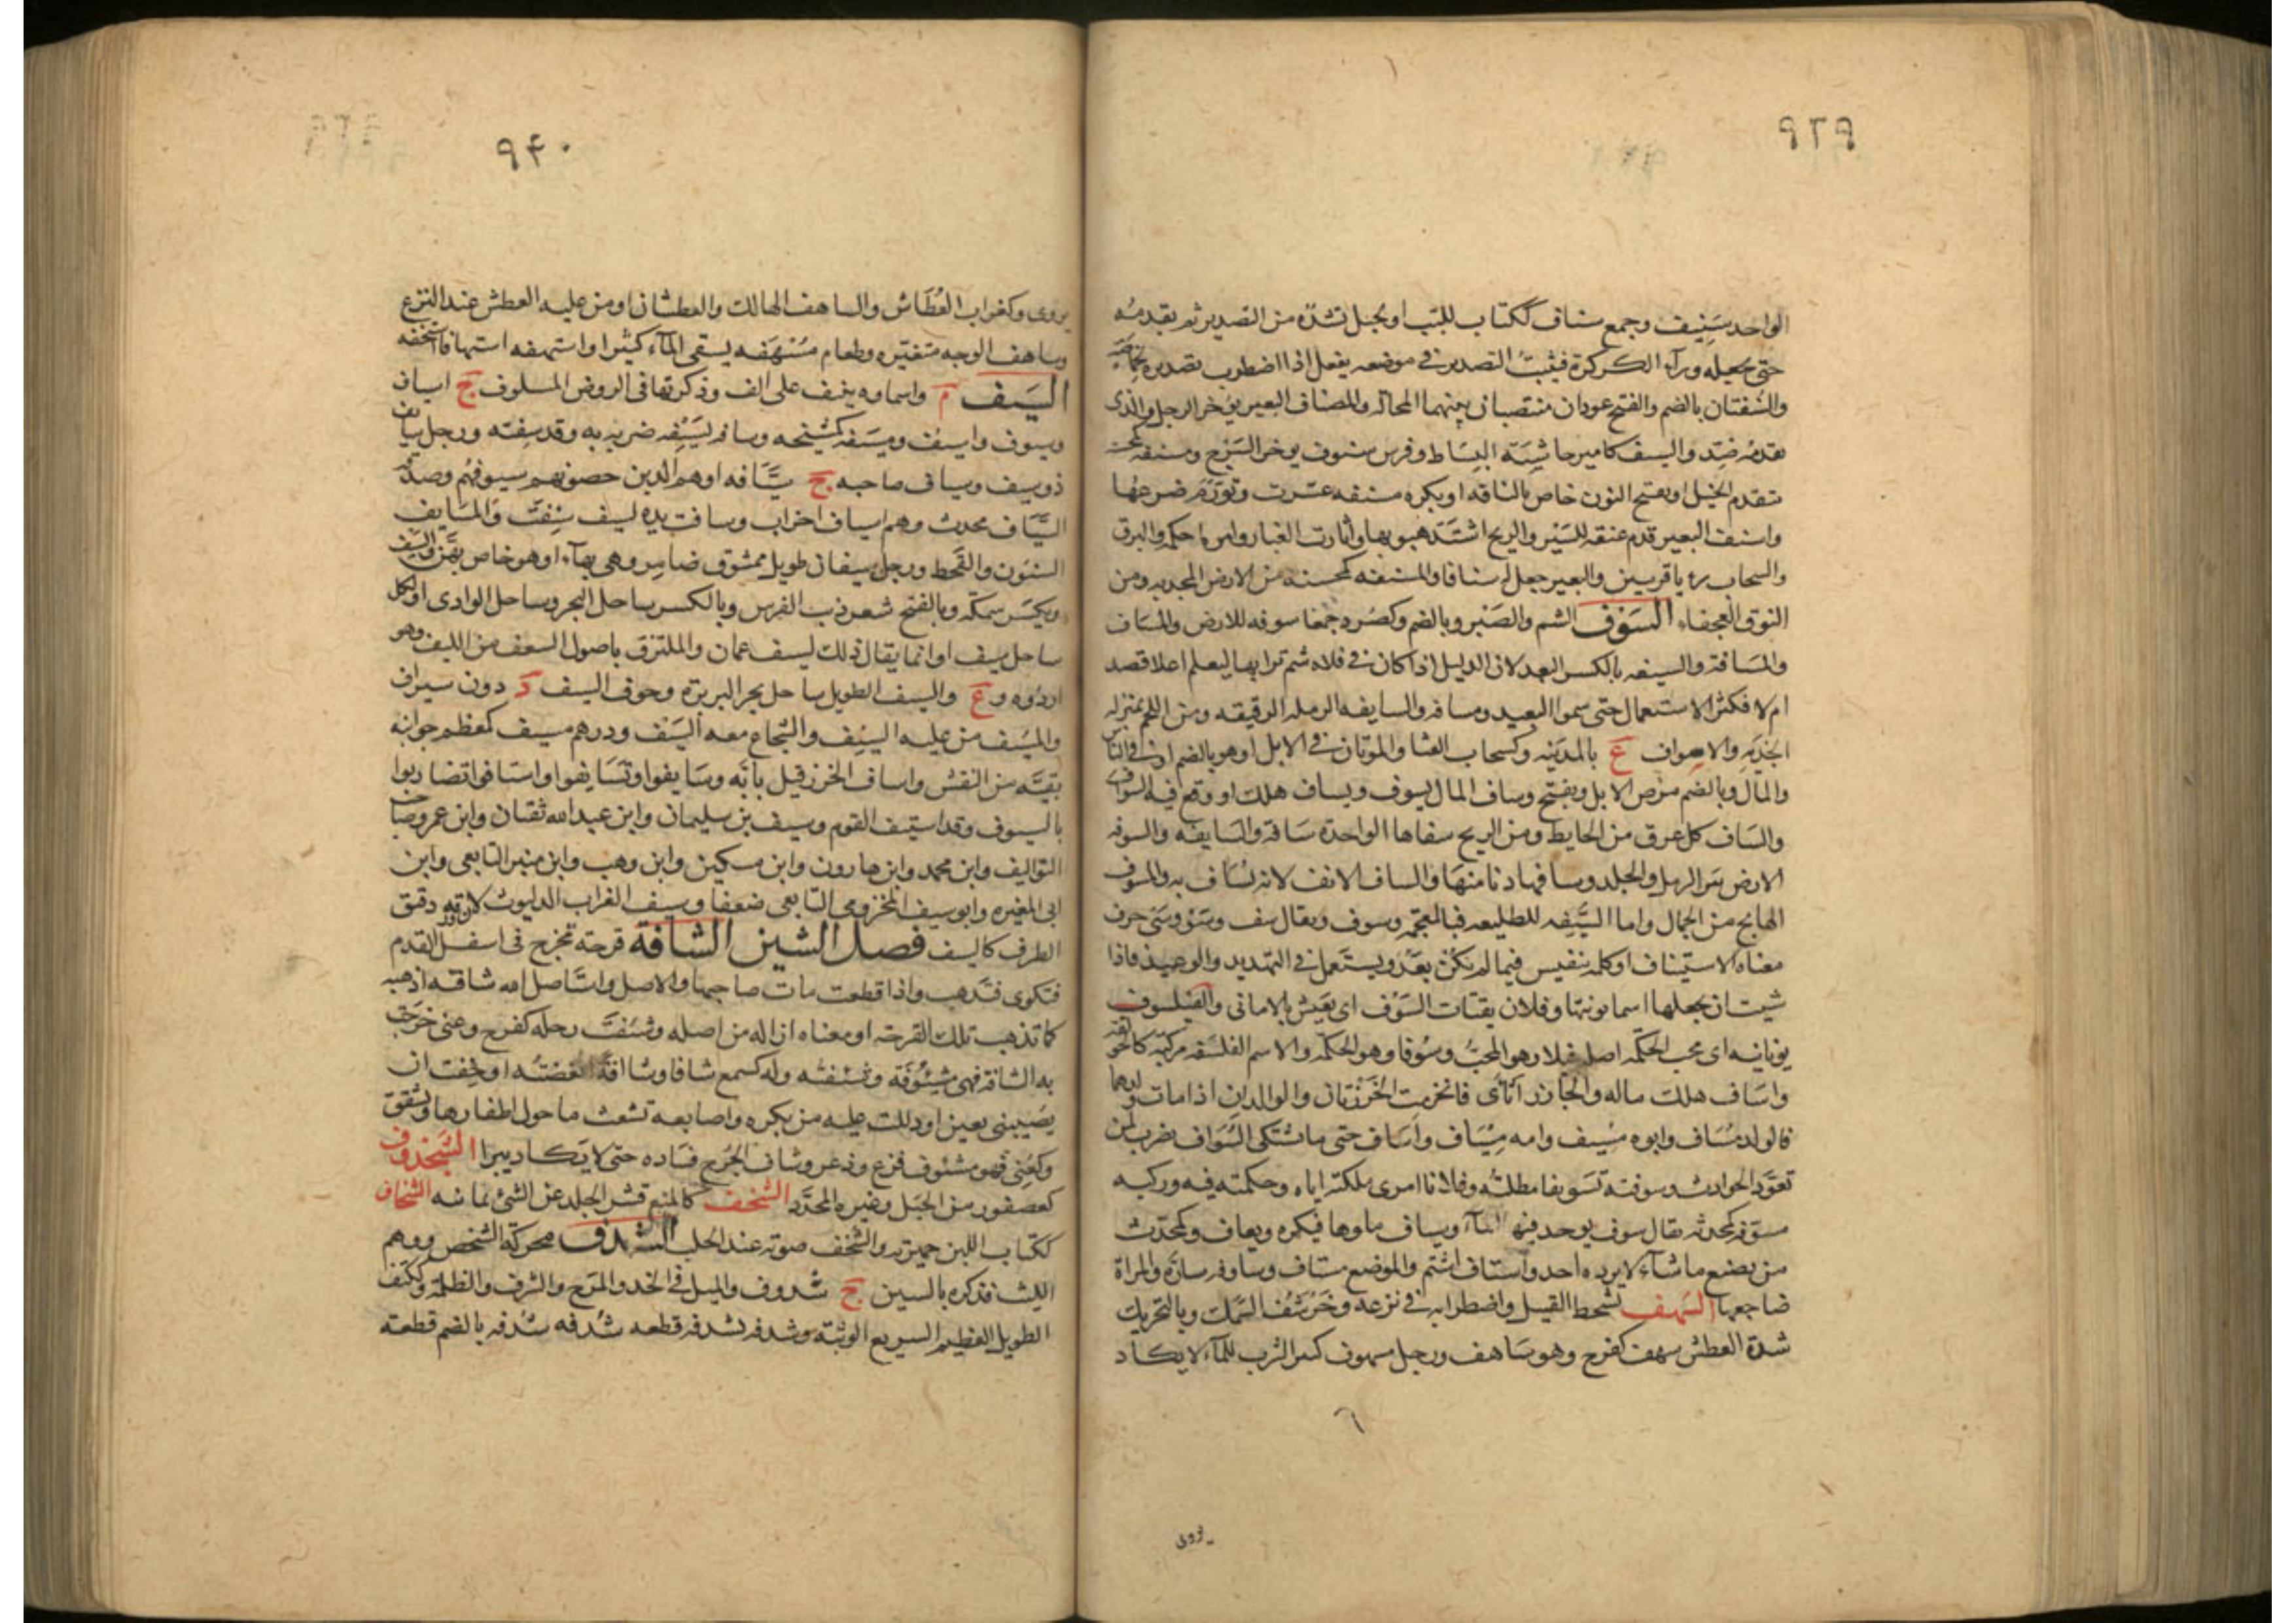 ٩٣٩
الواحد سَنِيف وجمع سناف ككتاب للبب او لحبل تشدّه من التصدير ثم تقدمُه
حتى تجعله ورآء الكركرة فيثبتُ التصدير فى موضعه يفعل اذا اضطرب تصديره لخماصته
والسُنفتان بالضم والفتح عودان منتصبان بينهما المحالة والمسناف البعير يؤخر الرجل والذى
يقدمُه ضِد والسنيف كامير حاشِيَة البِسَاط وفرس سنوف يوخر السَرْج ومسنفه كمحسنه
تتقدم الخيل او بفتح النون خاص بالناقه او بكره مسنفه عشرت وتورّم ضرعها
واسنف البعير قدم عنقه للسَيْر والريح اشتَدّ هبوبها واثارت الغبار وامره احكمه والبرق
والسحاب رءيا قريبين والبعير جعل له سنافا والمسنفه كمحسنه من الارض المجدبه ومن
النوق العجفاء السَوْف الشم والصَبْر وبالضم وكصُرد جمعا سوفه للارض والمسَاف
والمسَافة والسيفه بالكسر البعد لان الدليل اذا كان فى فلاه شم ترابها ليعلم اعلا قصد
ام لا فكثر الاستعمال حتى سموا البعيد ومسافه والسايفه الرمله الرقيقه ومن اللحم بمنزله
الحذيه والاسواف ع بالمدينه وكسحاب القثا والموتان فى الابل او هو بالضم او فى الناس
والمال وبالضم مرض الابل ويفتح وساف المال يسوف ويساف هلك او وقع فيه السواف
والسَاف كل عرق من الحايط ومن الريح سفاها الواحدة سَافة والسَايفه والسوفه
الارض بين الرمل والجلد وسافها دنا منها والساف الانف لانه يُسَاف به والمسوف
الهايج من الجمال واما السَيّفه للطليعه فبالمعجمه وسوف ويقال سف وسَوْ وسَى حرف
معناه الاستيناف او كلمه تنفيس فيما لم يكن بعدُ ويستعمل فى التهديد والوعيد فاذا
شيت ان تجعلها اسما نونتها وفلان يقتات السَوْف اى يعَيش بالامانى والفيلسوف
يونانيه اى محب الحكمه اصله فيلا وهو المحبّ وسُوفا وهو الحكمه والاسم الفلسفه مركبه كالحوقله
واسَاف هلك ماله والخارز اثأى فانخرمت الخَرْزتان والوالدان اذا مات ولدهما
فالولد مُسَاف وابوه مُسِيف وامه مِسْيَاف واسَاف حتى ما يشتكى السُوَاف يضرب لمن
تعوَّد الحوادث وسوفته تَسْويفا مطلتُه وفلانا امرى ملكته اياه وحكمته فيه وركيه
مسوّفه كمحدثه يقال سوف يوجد فيها المآء ويساف ماوها فيكره ويعاف وكمحدّث
من يصنع ما شآء لا يرده احد واستاف اشتم والموضع مستاف وساوفه سارّه والمراة
ضاجعها السَّهف تشحط القتيل واضطرابه فى نزعه وخَرْشَفُ السَّمك وبالتحريك
شدة العطش سهف كفرح وهو سَاهف ورجل سهوف كثير الشرب للمآء لا يكاد
٦
يروى
٩٤٠
يروى وكغراب العُطَاش والساهف الهالك والعطشان او من غلبه العطش عند النزع
وساهف الوجه متغيّره وطعام مَسْهَفه يسقى المآء كثيرا واستهفه استهافا استخفه
السَيف م واسماوه ينيف على الف وذكرتها فى الروض المسلوف ج اسياف
وسيوف واسيف ومسَيَفه كمَشْيَخه وسافه يَسِيْفه ضربه به وقد سِفته ورجل سايف
ذو سيف وسياف صاحبه ج سَيَّافه او هم الذين حصونهم سيوفهم وصدقه
السيَّاف محدث وهم اسياف احزاب وسافت يده ليسف سِئِفَت والمسَايف
السنون والقَحط ورجل سيفان طويل ممشوق ضامِر وهى بهآء او هو خاص بهنّ والسيف
ويكسَر سمكه وبالفتح شعر ذنب الفرس وبالكسر ساحل البحر وساحل الوادى او لكل
ساحل سيف او انما يقال ذلك لسيف عمان والملتزق باصول السعف من الليف وهو
اردؤه وع والسيف الطويل ساحل بحر البربرة وخوف السيف د دون سيراف
والمسَيف من عليه السَيْف والشجاع معه السَيف ودرهم مسيف كمعظم جوانبه
نقيّه من النقش واساف الخرز قيل بانّه وسَايفوا وتسَايفوا واستافوا تضاربوا
بالسيوف وقد استيف القوم وسيف بن سليمان وابن عبيد الله ثقتان وابن عمر وصاحب
التواليف وابن محمد وابن هارون وابن مسكين وابن وهب وابن منير التابعى وابن
ابى المغيره وابو سيف المخزومى التابعى ضعفا وسيف الغراب الدليوث لان ورقه دقيق
الطرف كالسيف فصل الشين الشافة قرحة تخرج فى اسفل القدم
فتكوى فتذهب واذا قطعت مات صاحبها والاصل واستَاصل الله شافته اذهبه
كما تذهب تلك القرحة او معناه ازاله من اصله وشئفت رجله كفرح وعنى خرجت
به الشافة فهى مشئوفَة وشئفته وله كسمع شافا وشاافةً ابغضته او خفت ان
يصَيبنى بعين او دللت عليه من يكره واصابعه تشعث ما حول اظفارها وتشقق
وكعُنِى فهو مشئوف فزع وذعر وشاف الجُرح فسَاده حتى لا يكاد يبرا الشحذوف
كعصفور من الجبل وغيره المحدّد الشحف كالمنع قشر الجلد عن الشئ يمانيه الشخاف
ككتاب اللبن حميريه والشخف صوته عند الحلب الشدف محركة الشخص ووهم
الليث فذكره بالسين ج شدوف والميل فى الخد والمرَح والشرف والظلمة وككتف
الطويل العظيم السريع الوثبة وشدفه يشدفه قطعه شدفه شدفه بالضم قطعته